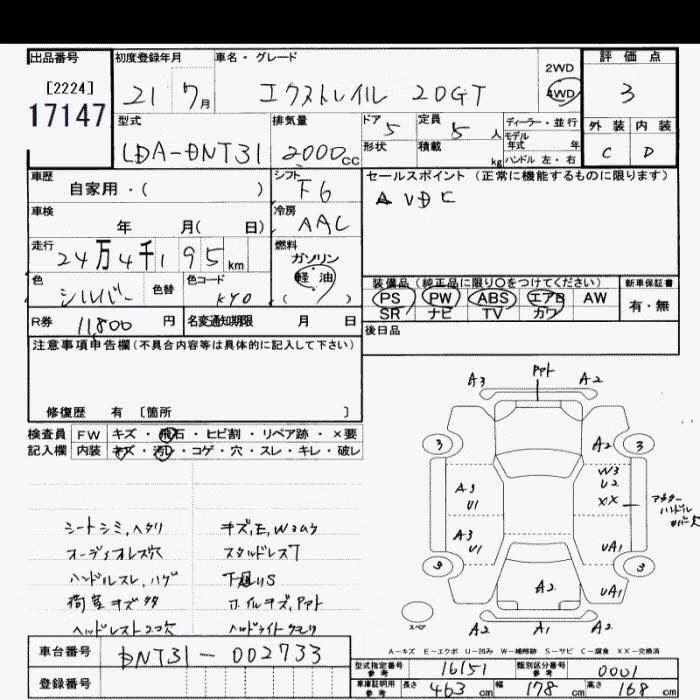 出品番号 初度登録年月 車名・グレード 評価点
[2224]
17147
21 7月 エクストレイル 20GT 2WD 4WD 3
型式 排気量 ドア 5 定員 5人 ディーラー・並行 外装 内装
LDA-DNT31 2000cc 形状 積載 kg モデル年式 年 ハンドル 左・右 C D
車歴 シフト セールスポイント (正常に機能するものに限ります)
自家用・( ) F6 AVDC
車検 冷房
年 月( 日) AAC
走行 燃料
24万4千195km ガソリン
軽油
( )
色 色替 色コード 装備品 (純正品に限り○をつけてください) 新車保証書
シルバー KY0 PS PW ABS エアB AW 有・無
SR ナビ TV カワ
R券 11,800円 名変通知期限 月 日 後日品
注意事項申告欄(不具合内容等は具体的に記入して下さい)
修復歴 有 [箇所 ]
検査員 FW キズ・飛石・ヒビ割・リペア跡・×要
記入欄 内装 キズ・汚れ・コゲ・穴・スレ・キレ・破レ
シートシミ,ヘタリ
オーディオレス穴
ハンドルスレ,ハゲ
荷室キズ
キズ,E,W
スタッドレス
下廻りS
ホイルキズ
ヘッドライト
A3 A2
3 A2 3
W3
A3 U2
U1 XX
アウターハンドルカバー欠
A3
U1 UA1
3 3
A2 UA1
スペア A2 A1 A2
A-キズ E-エクボ U-凹み W-補修跡 S-サビ C-腐食 XX-交換済
車台番号 DNT31-002733
登録番号
型式指定番号 参考 16151 類別区分番号 参考 0001
車庫証明用 参考 長さ 463cm 幅 178cm 高さ 168cm